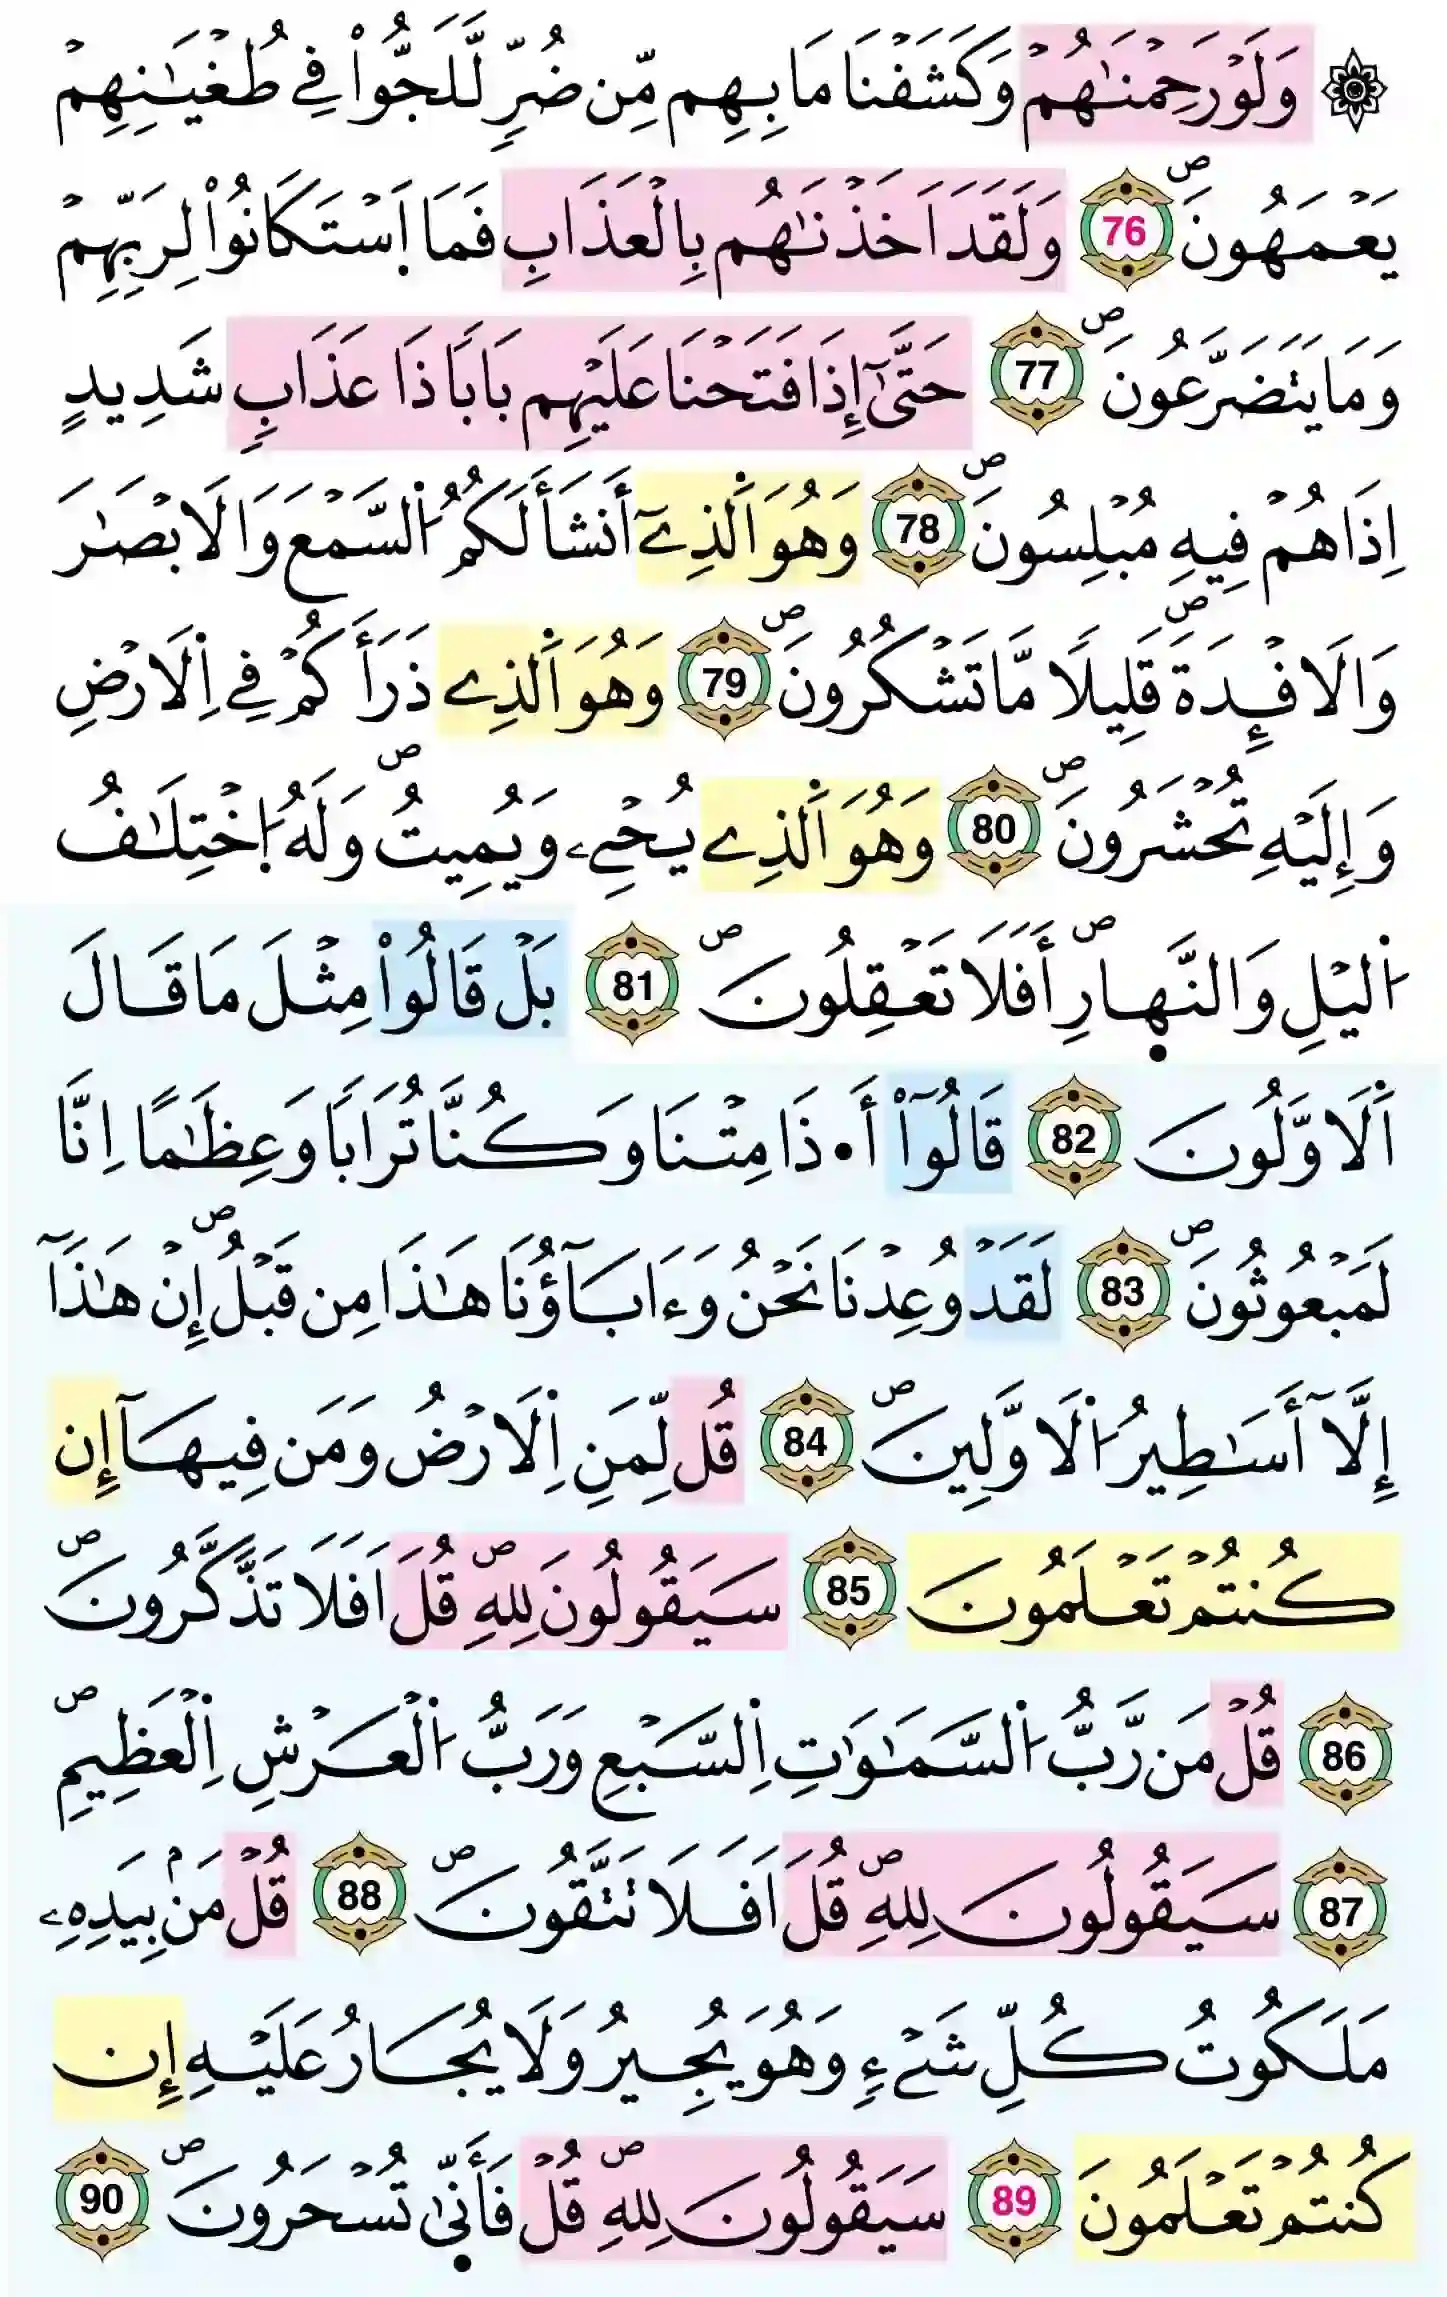 ۞ وَلَوْ رَحِمْنَٰهُمْ وَكَشَفْنَا مَا بِهِم مِّن ضُرّٖ لَّلَجُّواْ فِے طُغْيَٰنِهِمْ
يَعْمَهُونَۖ 76 وَلَقَدَ اَخَذْنَٰهُم بِالْعَذَابِ فَمَا اَ۪سْتَكَانُواْ لِرَبِّهِمْ
وَمَا يَتَضَرَّعُونَۖ 77 حَتَّىٰٓ إِذَا فَتَحْنَا عَلَيْهِم بَاباٗ ذَا عَذَابٖ شَدِيدٍ
اِذَا هُمْ فِيهِ مُبْلِسُونَۖ 78 وَهُوَ اَ۬لذِےٓ أَنشَأَ لَكُمُ اُ۬لسَّمْعَ وَالَابْصَٰرَ
وَالَافْـِٕدَةَۖ قَلِيلاٗ مَّا تَشْكُرُونَۖ 79 وَهُوَ اَ۬لذِے ذَرَأَكُمْ فِے اِ۬لَارْضِ
وَإِلَيْهِ تُحْشَرُونَۖ 80 وَهُوَ اَ۬لذِے يُحْيِۦ وَيُمِيتُۖ وَلَهُ اُ۪خْتِلَٰفُ
اُ۬ليْلِ وَالنَّه۪ارِۖ أَفَلَا تَعْقِلُونَۖ 81 بَلْ قَالُواْ مِثْلَ مَا قَالَ
اَ۬لَاوَّلُونَ 82 قَالُوٓاْ أَ۟ذَا مِتْنَا وَكُنَّا تُرَاباٗ وَعِظَٰماً اِنَّا
لَمَبْعُوثُونَۖ 83 لَقَدْ وُعِدْنَا نَحْنُ وَءَابَآؤُنَا هَٰذَا مِن قَبْلُۖ إِنْ هَٰذَآ
إِلَّآ أَسَٰطِيرُ اُ۬لَاوَّلِينَۖ 84 قُل لِّمَنِ اِ۬لَارْضُ وَمَن فِيهَآ إِن
كُنتُمْ تَعْلَمُونَ 85 سَيَقُولُونَ لِلهِۖ قُلَ اَفَلَا تَذَّكَّرُونَۖ
86 قُلْ مَن رَّبُّ اُ۬لسَّمَٰوَٰتِ اِ۬لسَّبْعِ وَرَبُّ اُ۬لْعَرْشِ اِ۬لْعَظِيمِۖ
87 سَيَقُولُونَ لِلهِۖ قُلَ اَفَلَا تَتَّقُونَۖ 88 قُلْ مَنۢ بِيَدِهِۦ
مَلَكُوتُ كُلِّ شَےْءٖ وَهُوَ يُجِيرُ وَلَا يُجَارُ عَلَيْهِ إِن
كُنتُمْ تَعْلَمُونَ 89 سَيَقُولُونَ لِلهِۖ قُلْ فَأَنّ۪ىٰ تُسْحَرُونَۖ 90